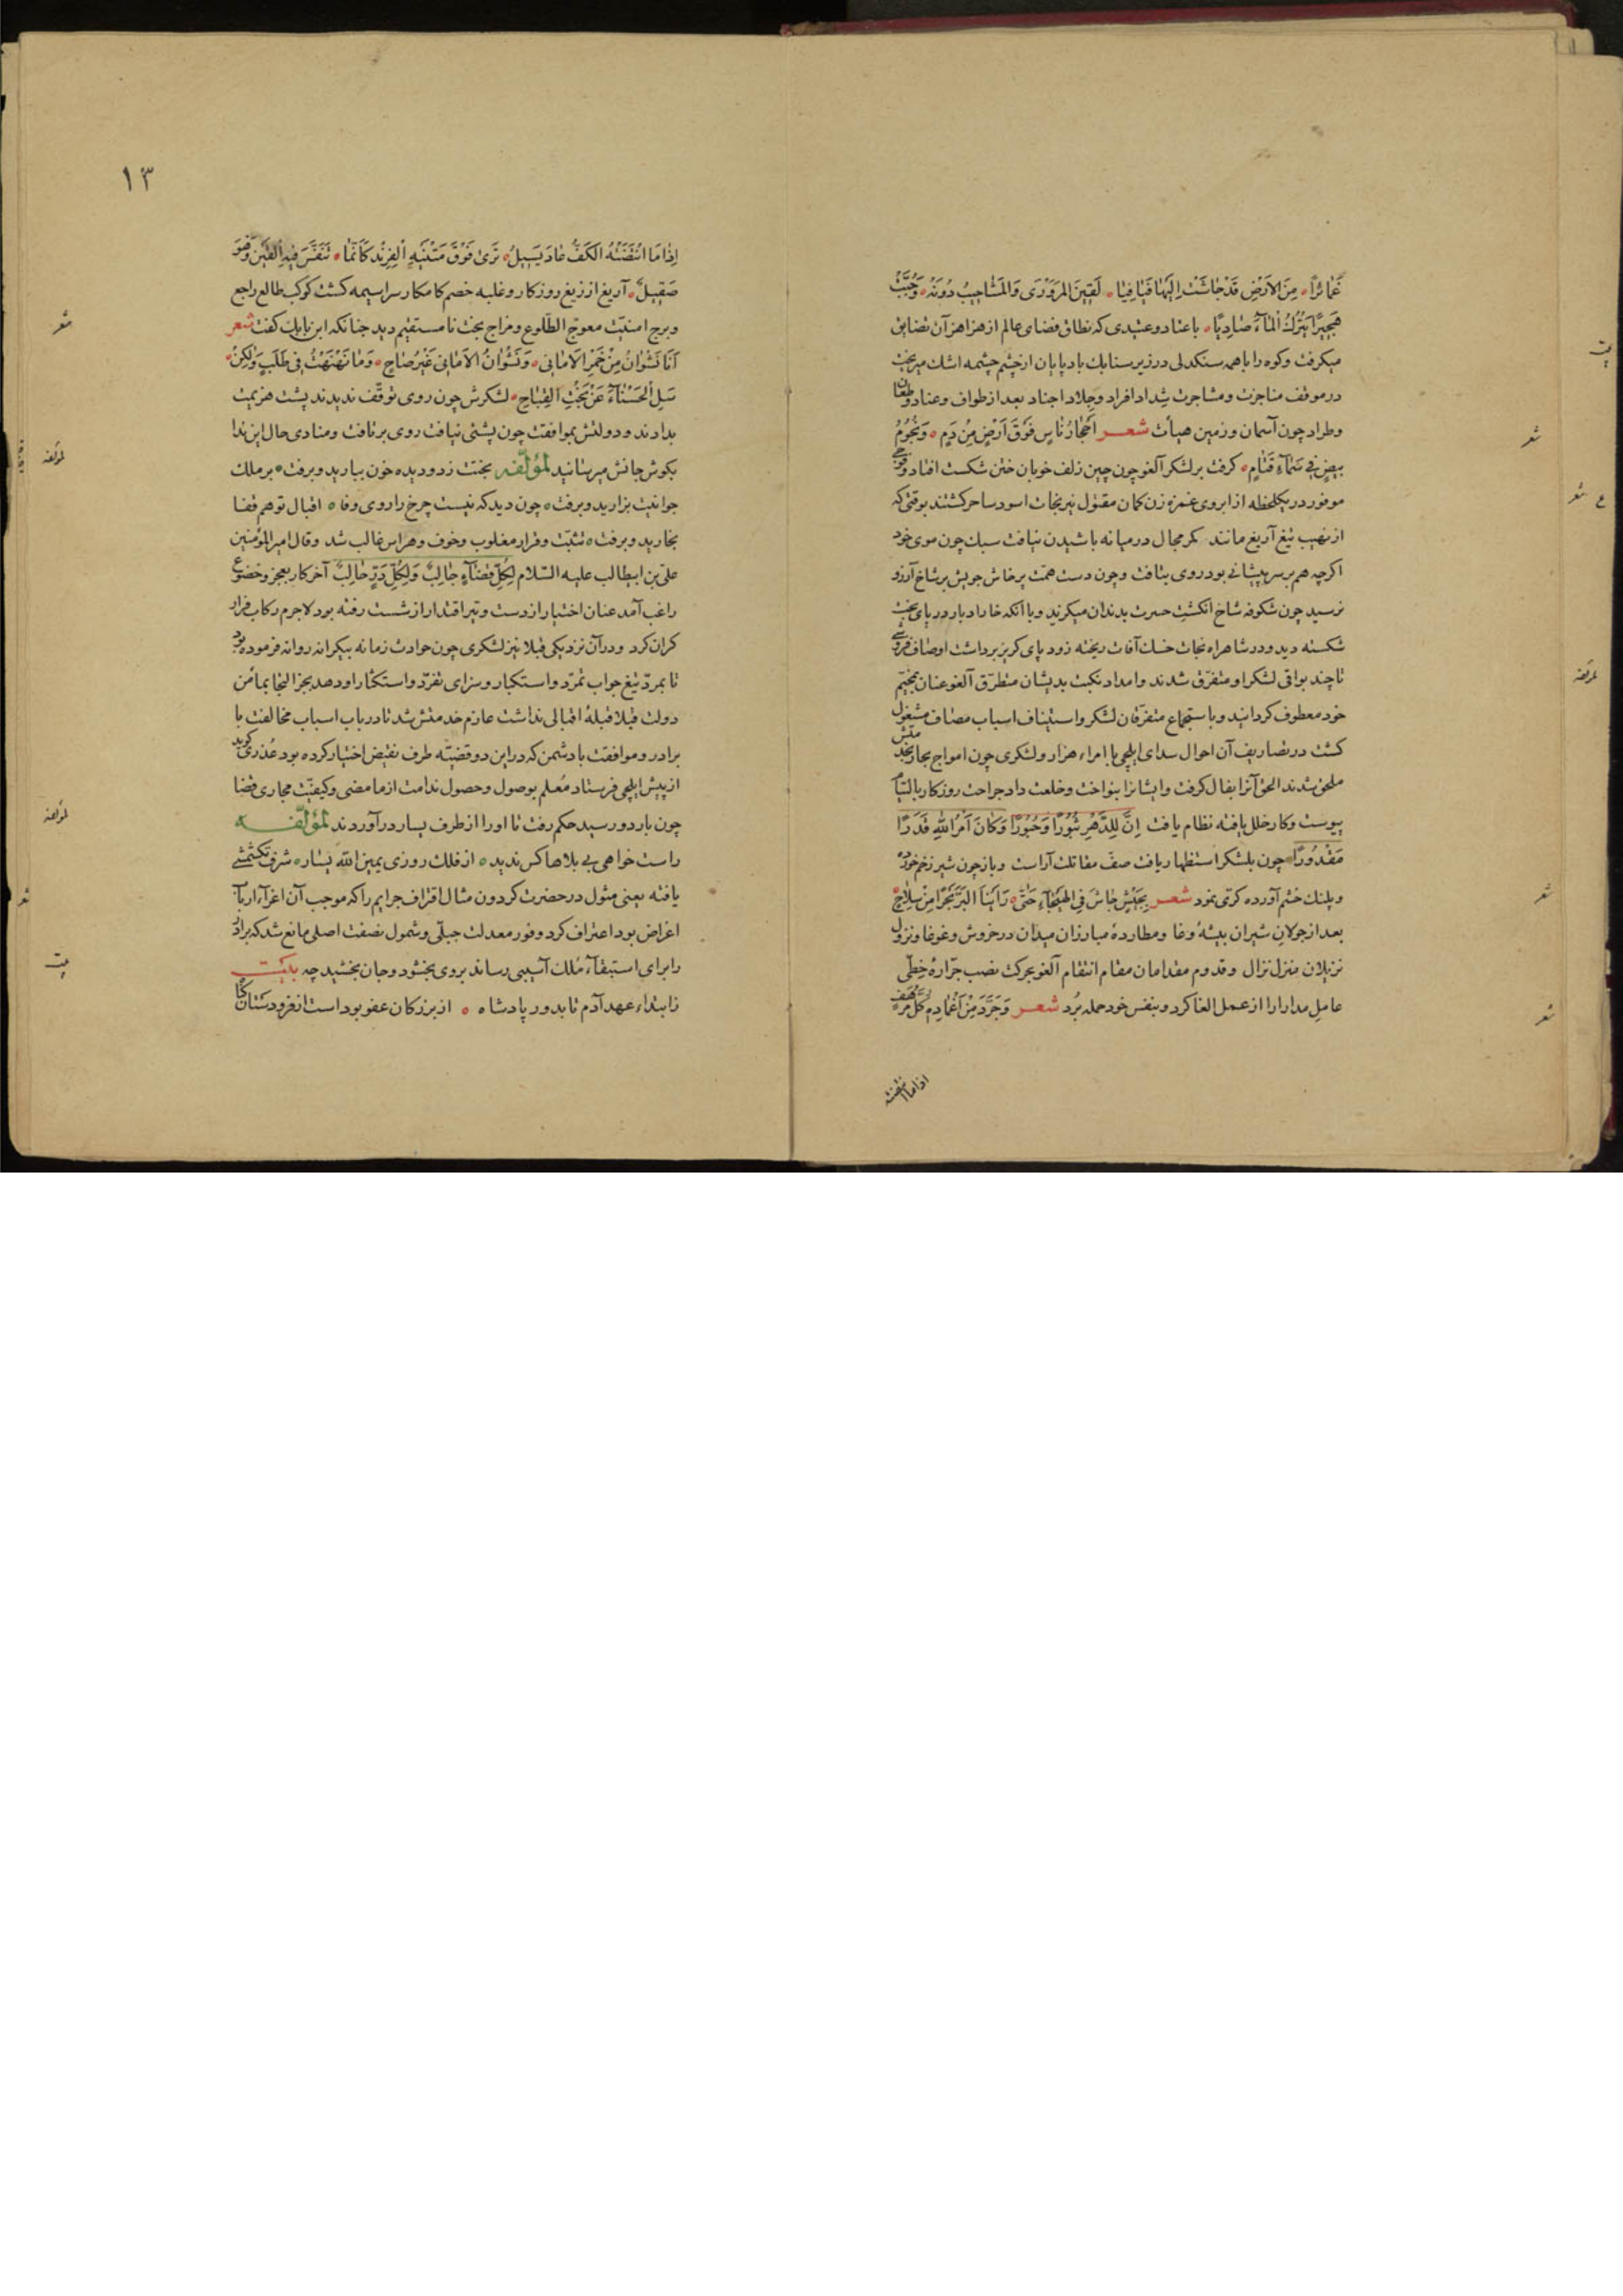 غَمَائِرًا مِنَ الاَرْضِ قَدْ جَاشَتْ اِلَيْهَا فَيَافِيَا لَقِيَنَ المَرَوْرَى وَالمَشَاجِيبُ دُونَهُ وَجُبْتُ
هَجِيرًا يَتْرُكُ المَآءَ صَادِيًا با عناد و عتیدی که نطاق فضای عالم از هزاهز آن تضایق
میکرفت و کوه را با همه سنکدلی در زیر سنابک بادپایان از خشم چشمه اشک میریخت
در موقف مناجزت و مشاجرت شداد افراد و جلاد اجناد بعد از طواف و عناد و طعان
و طراد چون آسمان و زمین هیأت شعر اَحْجَارُ نَاسٍ فَوقَ اَرْضٍ مِنْ دَمٍ وَنُجُومُ
بيضٍ فِي سَمَآءِ قَتَامٍ کرفت بر لشکر آلغو چون چین زلف خوبان ختن شکست افتاد و
موفور در یکلحظه از ابروی غمزه زن کمان مقتول نیرنجات اسود ساحر کشتند بوقتی که
از نهیب تیغ آریغ مانند کمر مجال در میانه باشیدن نیافت سبک چون موی خود
اکرچه هم بر سر پیشانی بود روی بتافت و چون دست همّت پرخاش جویش بر شاخ آرزو
نرسید چون شکوفه شاخ انکشت حسرت بدندان میکزید و با آنکه خار ادبار در پای بخت
شکسته دید و در شاهراه نجات خسک آفات ریخته زود پای کریز برداشت اوصاف
تا چند بواقی لشکر او متفرّق شدند و امداد نکبت بدیشان متطرّق آلغو عنان بمخیّم
خود معطوف کردانید و باستجماع متفرّقان لشکر و استیناف اسباب مصاف مشغول
کشت در تضاریف آن احوال سدای ایلچی با امراء هزار و لشکری چون امواج بحار بخدمتش
ملحق شدند الحق آنرا بفال کرفت و ایشانرا بنواخت و خلعت داد جراحت روزکار بالتیام
پیوست و کار خلل یافته نظام یافت اِنَّ لِلدَّهْرِ ثُبُورًا وَحُبُورًا وَكَانَ اَمْرُ اللهِ قَدَرًا
مَقْدُورًا چون بلشکر استظهار یافت صفّ مقاتلت آراست و باز چون شیر زخم خورده
و پلنک خشم آورده کرّی نمود شعر بِجَيْشٍ جَاشَ فِي الهَيْجَآءِ حَتَّى رَاَيْنَا البَرَّ بَحْرًا مِنْ سِلَاحٍ
بعد از جولان شیران بیشهٔ وغا و مطاردهٔ مبارزان میدان در خروش و غوغا و نزول
نزیلان منزل نزال و قدوم مقدامان مقام انتقام آلغو بحرکت نصب جرّارهٔ خطّی
عامل مدارا را از عمل الغا کرد و بنفس خود حمله بُرد شعر وَجَرَّدَ مِنْ اَغْمَادِهِ كُلَّ مُرْهَفٍ
اذا ما انتضته
۱۳
اِذَا مَا انْتَضَتْهُ الكَفُّ عَادَ يَسِيلُ تَرَى فَوْقَ مَتْنَيْهِ الفِرِنْدَ كَاَنَّمَا تَنَفَّسَ فِيهِ القَيْنُ وَهْوَ
صَقِيلٌ آریغ از زیغ روزکار و غلبه خصم کامکار سراسیمه کشت کوکب طالع راجع
و برج امنیّت معوجّ الطّلوع و مزاج بخت نامستقیم دید چنانکه ابن بابک کفت شعر
اَنَا نَشْوَانُ مِنْ خَمْرِ الاَمَانِي وَنَشْوَانُ الاَمَانِي غَيْرُ صَاحٍ وَمَا نَهْنَهْتُ فِي طَلَبٍ وَلٰكِنْ
سَلِ الحَسْنَآءَ عَنْ بَخْتِ القِبَاحِ لشکرش چون روی توقّف ندیدند پشت هزیمت
بدادند و دولتش بموافقت چون پشتی نیافت روی برتافت و منادی حال این ندا
بکوش جانش میرسانید لمؤلّفه بختت زد و دیده خون ببارید و برفت بر ملک
جوانیت بزارید و برفت چون دید که نیست چرخ را روی وفا اقبال تو هم قفا
بخارید و برفت تثبّت و قرار مغلوب و خوف و هراس غالب شد و قال امیر المؤمنین
علیّ بن ابیطالب علیه السّلام لِكُلِّ قَضَآءٍ جَالِبٌ وَلِكُلِّ دَرٍّ حَالِبٌ آخر کار بعجز و خضوع
راغب آمد عنان اختیار از دست و تیر اقتدار از شست رفته بود لاجرم رکاب فرار
کران کرد و در آن نزدیکی قبلا نیز لشکری چون حوادث زمانه بیکرانه روانه فرموده بود
تا بمردّ تیغ جواب تمرّد و استکبار و سزای تفرّد و استکثار او دهد بجز التجا بمأمن
دولت قبلا قبلهٔ اقبالی نداشت عازم خدمتش شد تا در باب اسباب مخالفت با
برادر و موافقت با دشمن که در این دو قضیّه طرف نقیض اختیار کرده بود عذری کوید
از پیش ایلچی فرستاد مُعلم بوصول و حصول ندامت از ما مضی و کیفیّت مجاری قضا
چون باردو رسید حکم رفت تا او را از طرف یسار درآوردند لمؤلّفه
راست خواهی بی بلاها کس ندید از فلک روزی یمین الله یسار شرف تکشمشی
یافته یعنی مثول در حضرت کردون مثال اقتراف جرایم را که موجب آن اغرآء ارباب
اغراض بود اعتراف کرد وفور معدلت جبلّی و شمول نصفت اصلی مانع شد که برادر
را برای استبقآء مُلک آسیبی رساند بروی بخشود و جان بخشید چه بیت
ز ابتداء عهد آدم تا بدور پادشاه از بزرکان عفو بوداست از فرودستان کناه